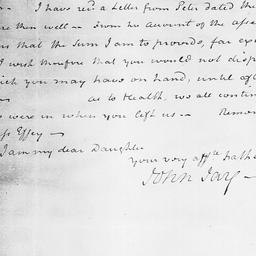 I have recd. a Letter from Peter dated the
then well — From his account of the asse
is that the Sum I am to provide, far exc
I wish therefore that you would not disp
ich you may have on hand, until aft
as to Health, we all contin
were in when you left us — Remem
ss Effey —
I am my dear Daughter
your very affte. fathe
John Jay —